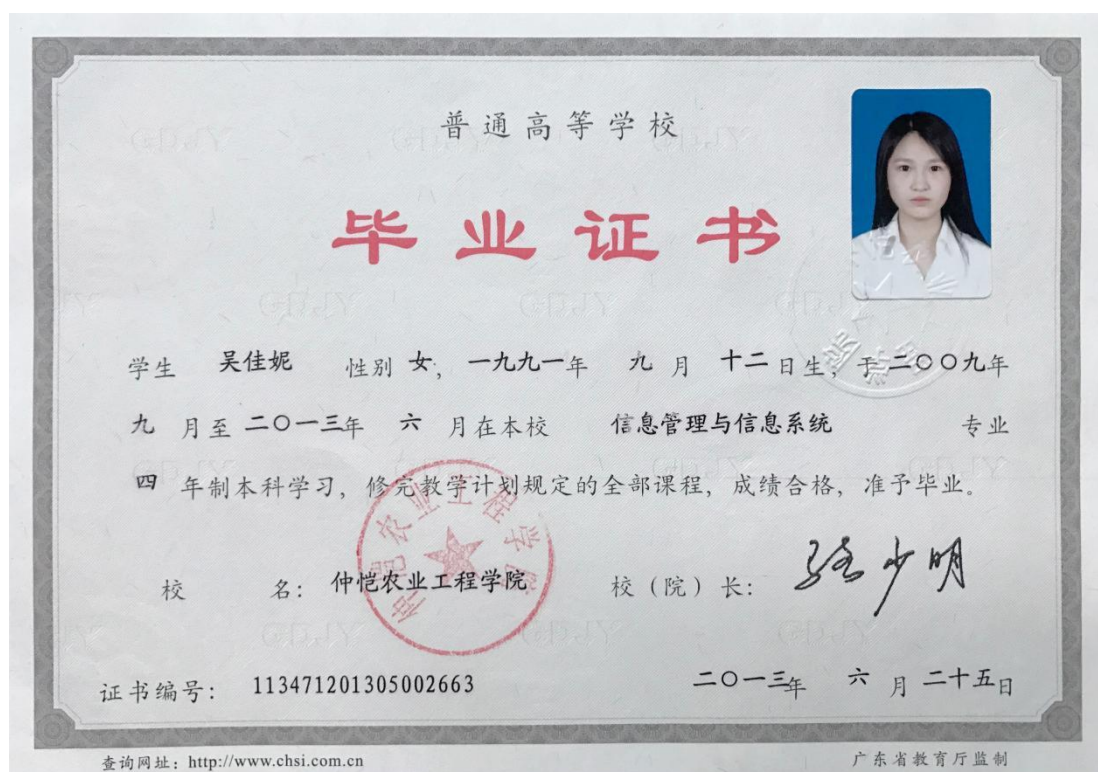 普通高等学校
毕业证书
学生 吴佳妮 性别 女，一九九一年 九 月 十二 日生，于二〇〇九年
九 月至 二〇一三年 六 月在本校 信息管理与信息系统 专业
四 年制本科学习，修完教学计划规定的全部课程，成绩合格，准予毕业。
校 名：仲恺农业工程学院 校（院）长：骆少明
仲恺农业工程学院
证书编号：113471201305002663 二〇一三年 六 月 二十五日
查询网址：http://www.chsi.com.cn 广东省教育厅监制